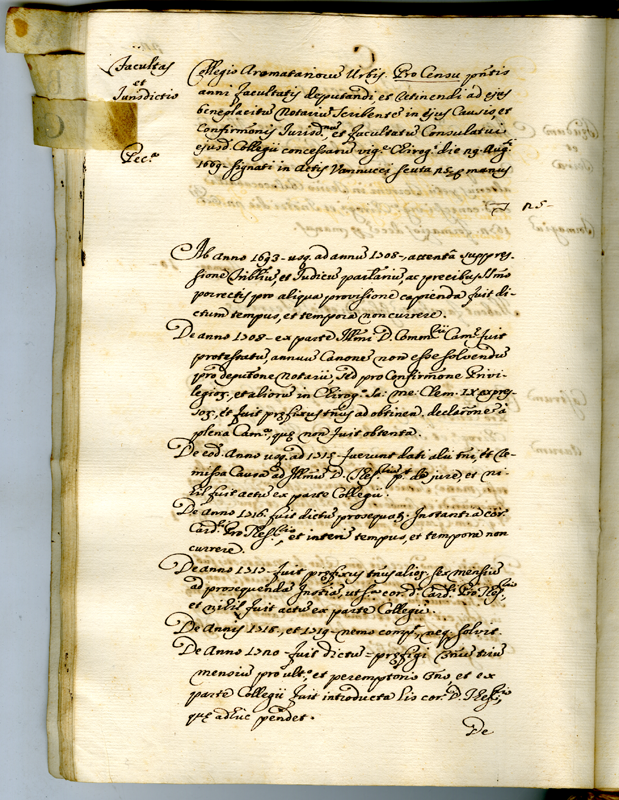 Facultas
et
Jurisdictio
Pec.ª
Collegio Aromatariorũ Urbis. Pro Censu pñtis
anni Facultatis Deputandi, et retinendi ad ejus
beneplacitũ Notariũ Scribentẽ in ejus Causis, et
Confirmõnis Jurisd.nis, et facultatũ Consulatui
ejusd. Collegii concessarũ vig.e Chirog.i die 29. Aug.ti
1669. signati in Actis Vannucci scuta 25 manus
▽ 25-
Ab Anno 1693- usq. ad annũ 1708-, attenta suppres-
sione Tribliũ, et Judicũ partlariũ, ac precibus SSmo
porrectis pro aliqua provisione capienda fuit di-
ctum tempus, et tempora non currere.
De anno 1708- ex parte Illmi D. Comm.rii Cam.e fuit
protestatũ, annuũ Canonẽ non esse solvendũ
pro deputõne Notarii, sed pro Confirmõne Privi-
legior., et aliorũ in Chirog.o Sa: me: Clem. IX expres-
sor., et fuit præfixus tñus ad obtinen. declarõnẽ à
plena Cam.a, quæ non fuit obtenta.
De eod. Anno usq. ad 1715- fuerunt dati alii tñi, et re-
missa Causa ad Illmũ D. Thes.riũ pt de jure, et ni-
hil fuit actũ ex parte Collegii.
De Anno 1716. fuit dictũ prosequat. Instantia cor.
Card. Pro Thes.rio, et interim tempus, et tempora non
currere.
De anno 1717- fuit præfixus tñus alior. sex mensiũ
ad prosequendã Instiã, ut s.a cor. d. Card. Pro Thes.rio,
et nihil fuit actũ ex parte Collegii.
De Annis 1718, et 1719- nemo comp.t, neq. solvit.
De Anno 1720- fuit dictũ = præfigi tñus triũ
mensiũ pro ult.o, et peremptorio tño, et ex
parte Collegii fuit introducta lis cor. D. Thes.rio,
quæ adhuc pendet.
De